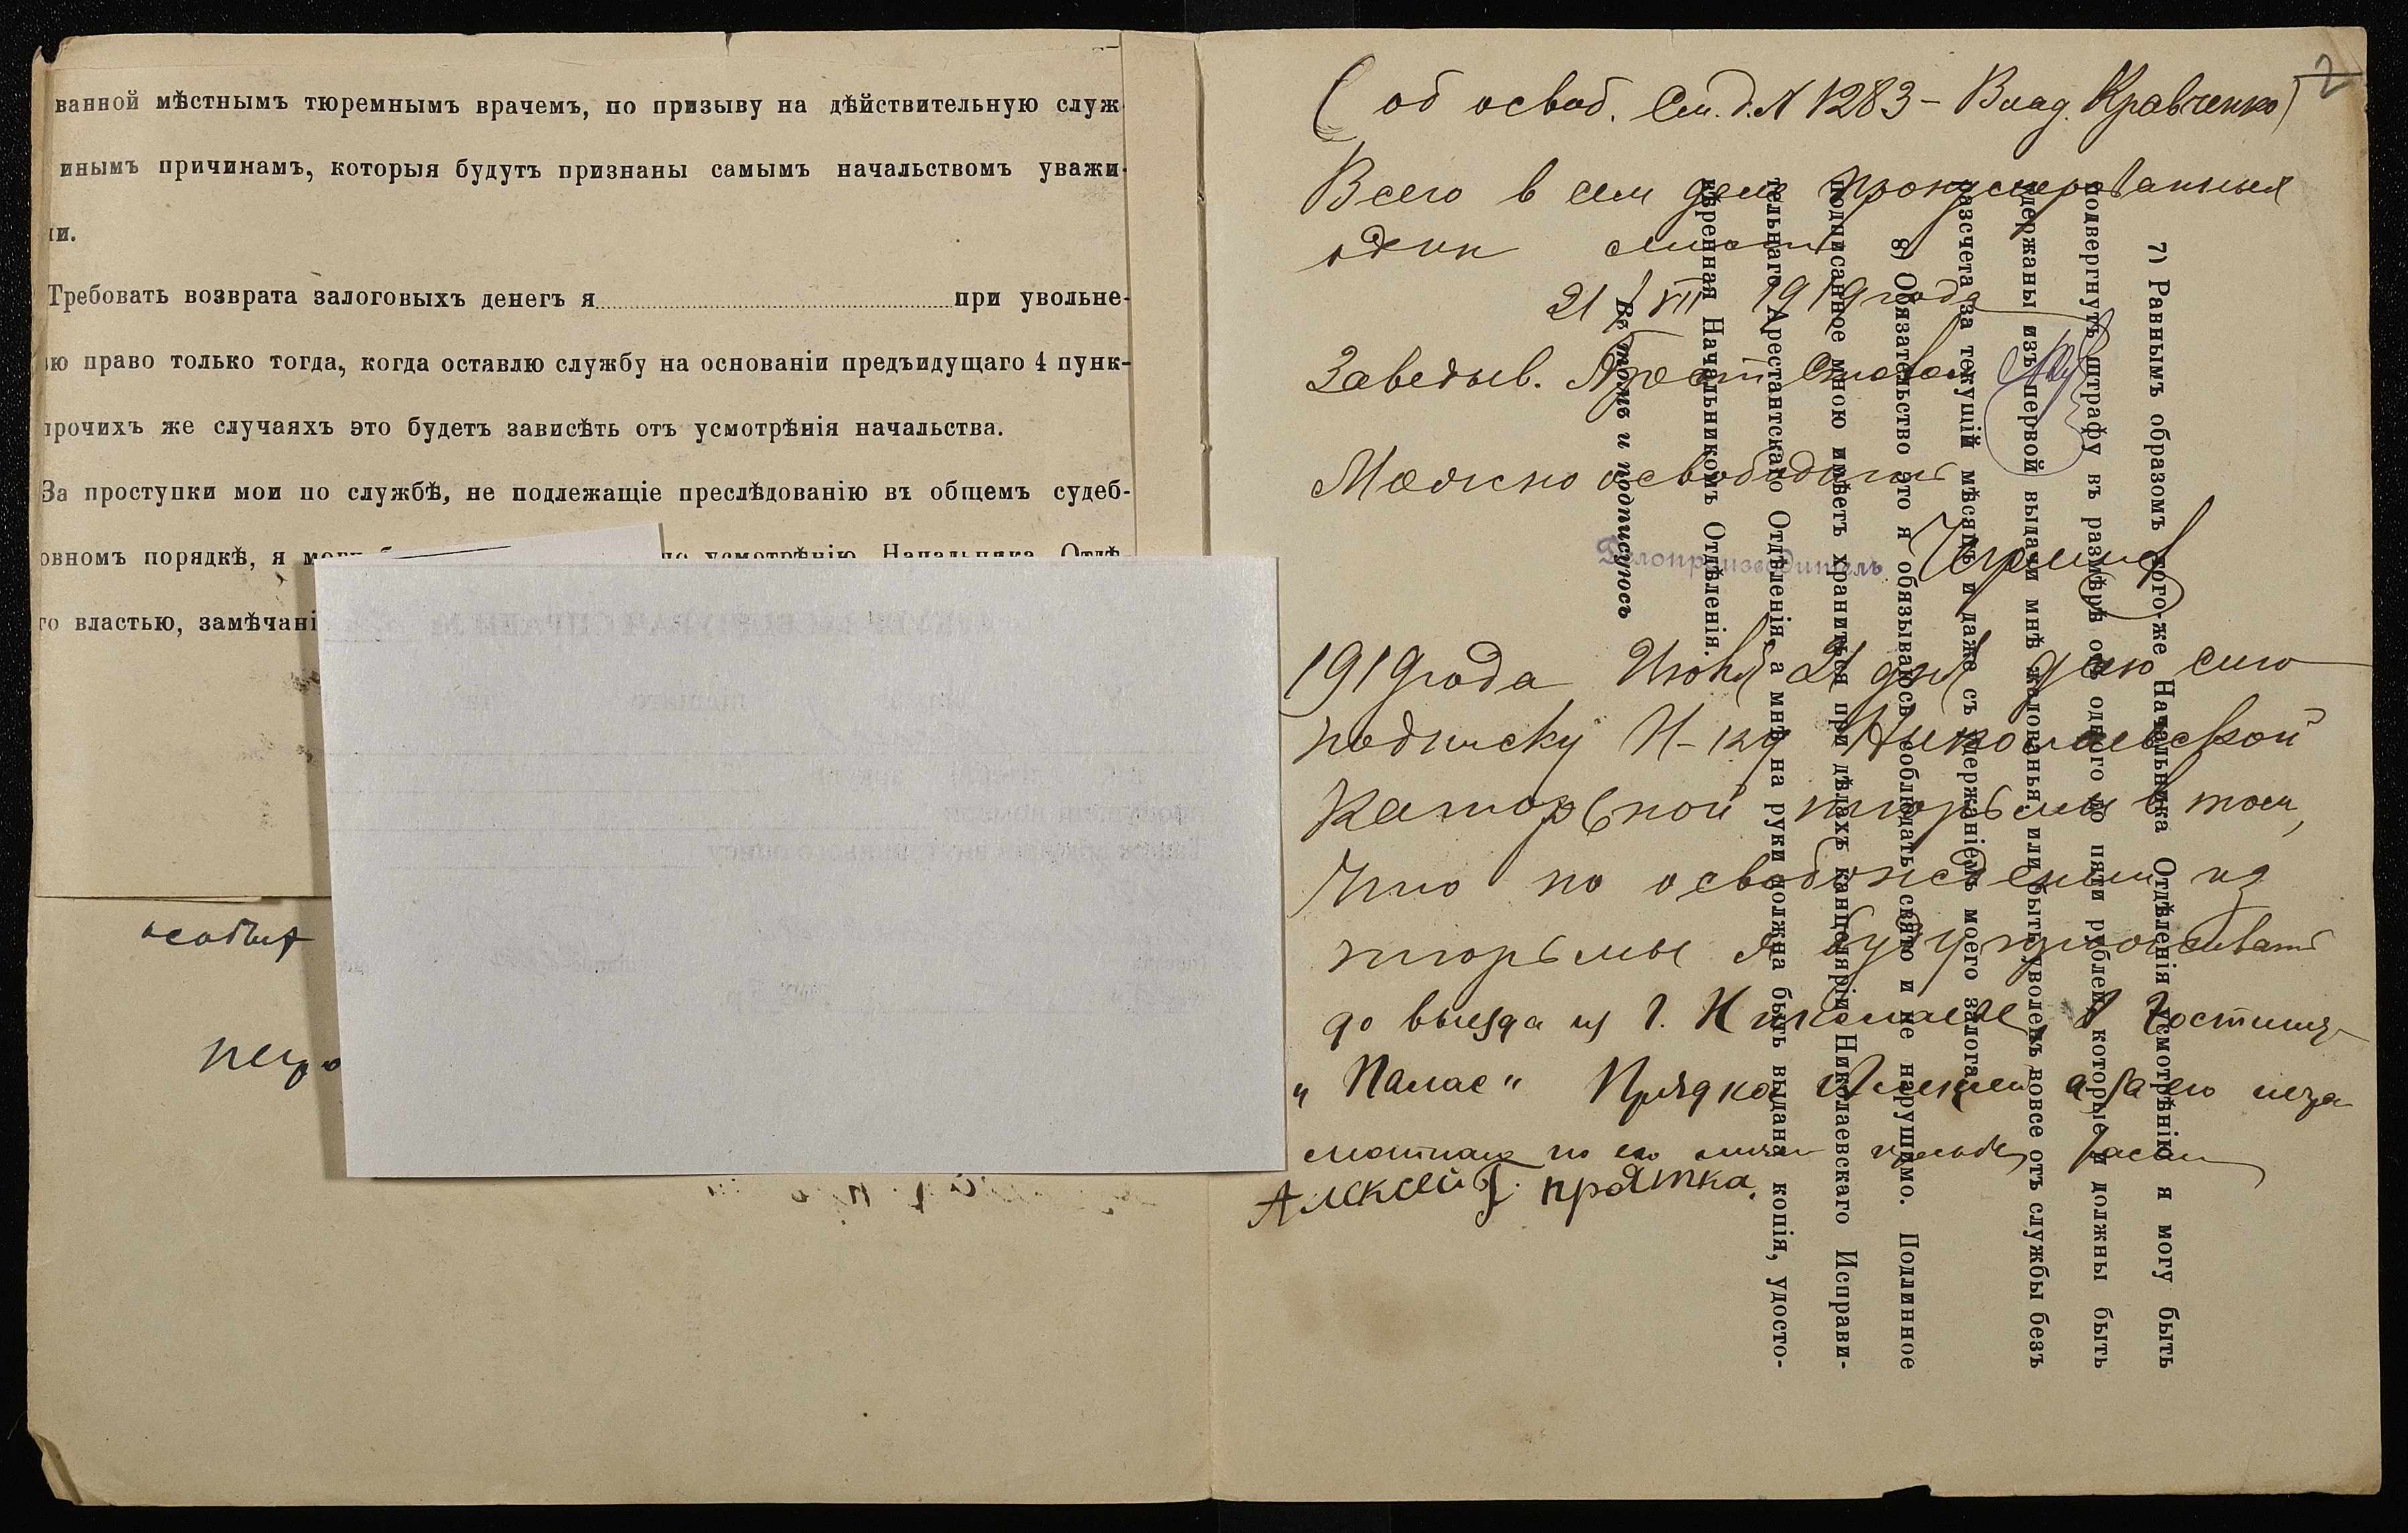 ванной мѣстнымъ тюремнымъ врачемъ, по призыву на дѣйствительную служ
инымъ причинамъ, которыя будутъ признаны самымъ начальствомъ уважи-
ли.
Требовать возврата залоговыхъ денегъ я при увольне-
ію право только тогда, когда оставлю службу на основаніи предъидущаго 4 пунк-
прочихъ же случаяхъ это будетъ зависѣть отъ усмотрѣнія начальства.
За проступки мои по службѣ, не подлежащіе преслѣдованію въ общемъ судеб-
овномъ порядкѣ, я могу по усмотрѣнію Начальника Отдѣ-
го властью, замѣчані
2
(об освоб. См. д. N 1283 - Влад. Кравченко)
Всего в сем деле пронумерованных
один лист
21/VII 1919 года
Заведыв. Арест. Столом
Можно освободить
Дѣлопроизводитель
1919 года Июля 21 дня даю сию
подписку Н-ку Николаевской
Каторжной тюрьмы в том,
что по освобождении из
тюрьмы я буду проживать
до выезда из г. Николаева в гостинице
„Палас" Прядка Алексей а за его негра
мотного по его личн просьбе
Алексей Г. прятка.
7) Равнымъ образомъ того-же Начальника Отдѣленія усмотрѣнію я могу быть
подвергнутъ штрафу въ размѣрѣ отъ одного до пяти рублей, которые и должны быть
удержаны изъ первой выдачи мнѣ жалованья, или быть уволенъ вовсе отъ службы безъ
разсчета за текущій мѣсяцъ и даже съ удержаніемъ моего залога.
8) Обязательство это я обязываюсь соблюдать свято и не нарушимо. Подлинное
подписанное мною имѣетъ храниться при дѣлахъ канцеляріи Николаевскаго Исправи-
тельнаго Арестантскаго Отдѣленія, а мнѣ на руки должна быть выдана копія, удосто-
вѣренная Начальникомъ Отдѣленія.
Въ томъ и подписуюсь